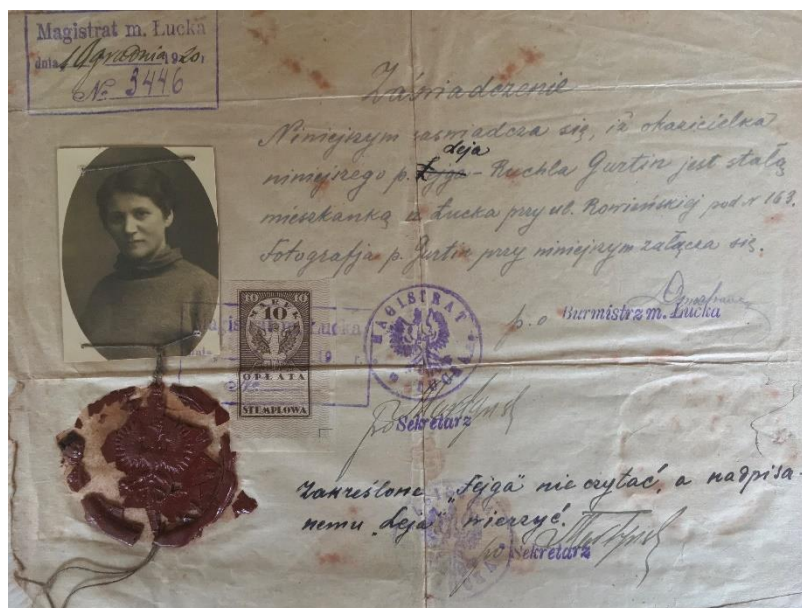 Magistrat m. Łucka
dnia 10 grudnia 1920
№ 3446
Zaświadczenie
Niniejszym zaświadcza się, iż okazicielka
Leja
niniejszego p. Fejga - Ruchla Gurtin jest stałą
mieszkanką m. Łucka przy ul. Rowieńskiej pod № 163.
Fotografja p. Gurtin przy niniejszym załącza się.
p.o Burmistrz m. Łucka
10 10
10
OPŁATA
STEMPLOWA
Magistrat m. Łucka
19
MAGISTRAT
ŁUCKA
po
Sekretarz
Zakreślone „Fejga" nie czytać, a nadpisa-
nemu „Leja" wierzyć.
po Sekretarz